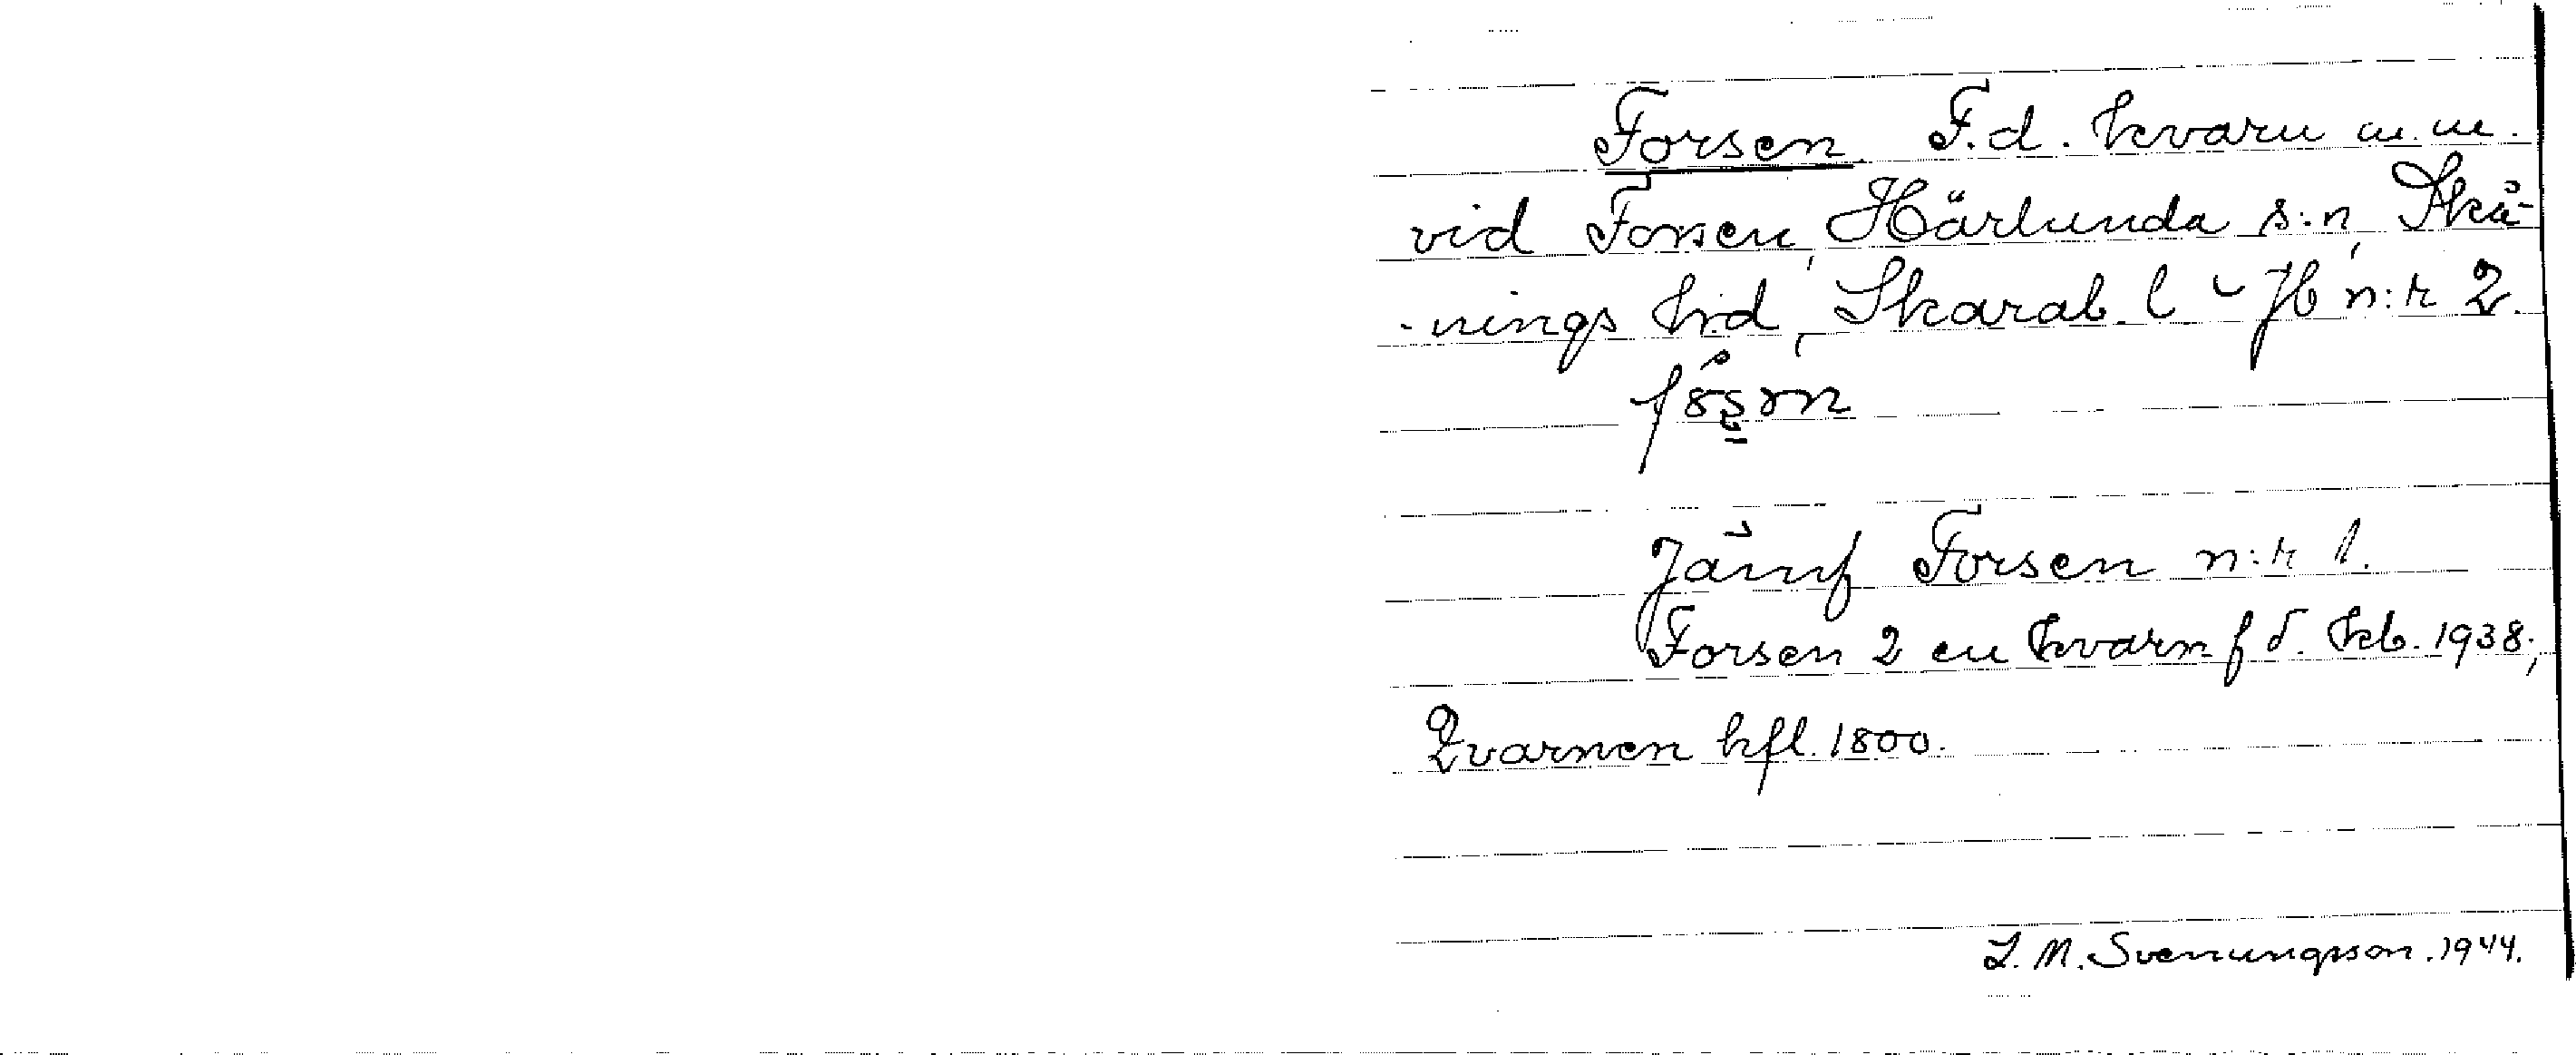 Forsen F.d. kvarn m.m.
vid Forsen, Härlunda s:n, Skå-
-nings h:d, Skarab. l Jb n:r 2.
Jämf Forsen n:r 1.
Forsen 2 en kvarn f d. kb. 1938;
Qvarnen hfl. 1800.
L. M. Svenungsson. 1944.